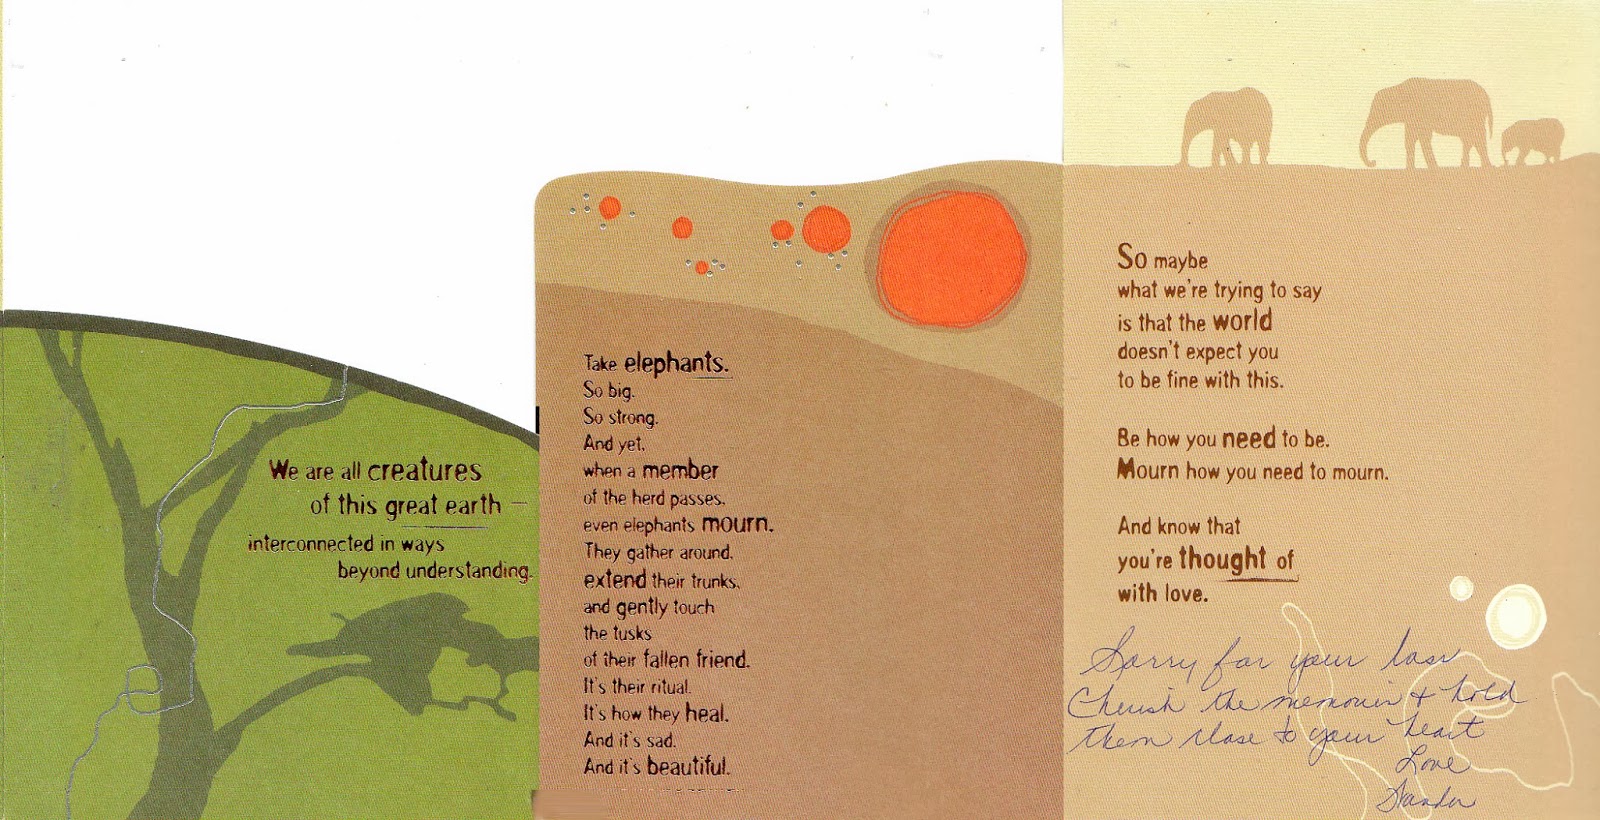 We are all creatures
of this great earth —
interconnected in ways
beyond understanding.
Take elephants.
So big.
So strong.
And yet,
when a member
of the herd passes,
even elephants mourn.
They gather around,
extend their trunks,
and gently touch
the tusks
of their fallen friend.
It's their ritual.
It's how they heal.
And it's sad.
And it's beautiful.
So maybe
what we're trying to say
is that the world
doesn't expect you
to be fine with this.
Be how you need to be.
Mourn how you need to mourn.
And know that
you're thought of
with love.
Sorry for your loss
Cherish the memories & hold
them close to your heart
Love